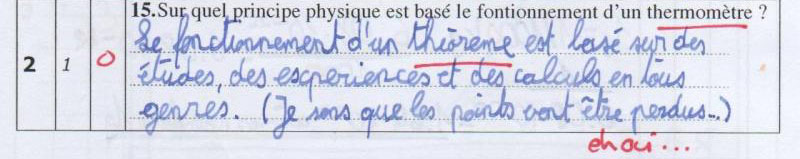 15.Sur quel principe physique est basé le fontionnement d'un thermomètre ?
Le fonctionnement d'un théorème est basé sur des
2 1 0 études, des experiences et des calculs en tous
genres. (Je sens que les points vont être perdus...)
eh oui...